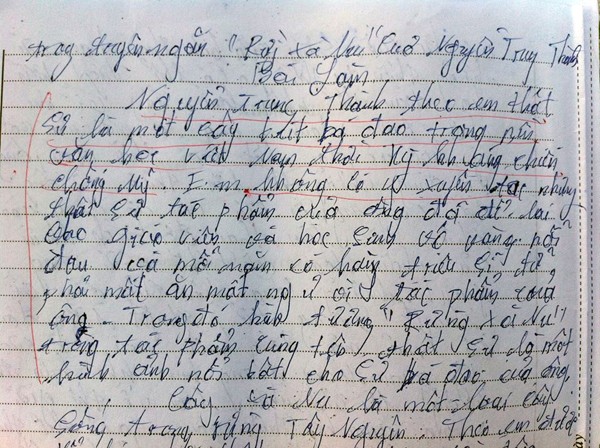 trong truyện ngắn "Rừng xà Nu" Của Nguyễn Trung Thành
Bài Làm
Nguyễn Trung Thành theo em thật
sự là một cây bút bá đạo trong nền
văn học việt Nam thời kỳ kháng chiến
chống Mỹ. Em không có ý xuyên tạc nhưng
thật sự tác phẩm của ông đã để lại
cho giáo viên và học sinh vô vàng nỗi
đau cả mỗi năm có hàng triệu sĩ tử
phải mất ăn mất ngủ vì tác phẩm của
ông. Trong đó hình tượng "Rừng xà Nu"
trong tác phẩm cùng tên thật sự là một
hình ảnh nổi bật cho sự bá đạo của ông.
Cây xà Nu là một loại cây
sống trong rừng Tây Nguyên. Theo em được